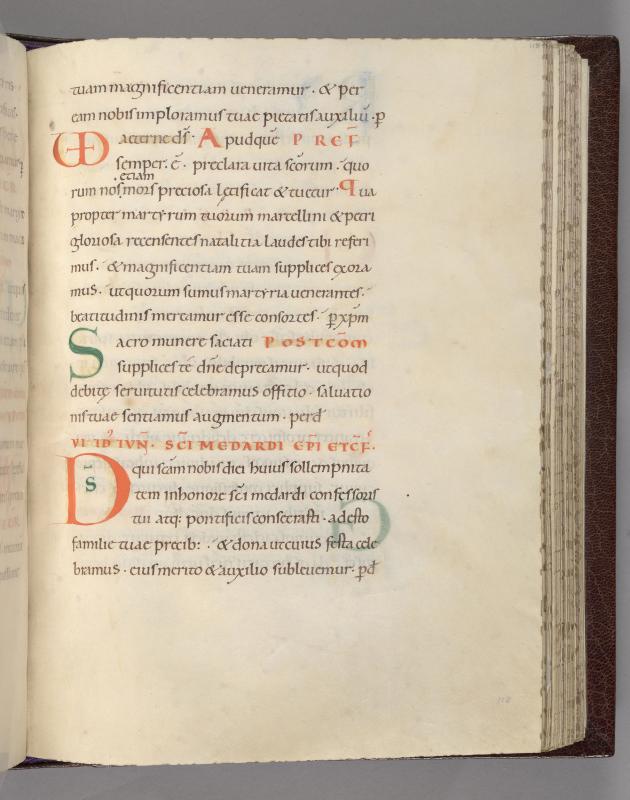 tuam magnificentiam ueneramur · & per
eam nobis imploramus tuae pietatis auxiliū · p
aeterne ds̄ · Apudquē PREF̄
semper · ē · preclara uita sc̄orum · quo
etiam
rum nos mors preciosa lętificat & tuetur · Qua
propter martyrum tuorum marcellini & petri
gloriosa recensentes natalitia laudes tibi referi
mus · & magnificentiam tuam supplices exora
mus · ut quorum sumus martyria uenerantes ·
beatitudinis mereamur esse consortes · p xp̄m
Sacro munere saciati POSTCOM̄
supplices tē dn̄e deprecamur · ut quod
debitę seruitutis celebramus officio · saluatio
nis tuae sentiamus augmentum · per d
VI ID IVN · SC̄I MEDARDI EP̄I ET CF̄ ·
DS̄ qui sc̄am nobis diei huius sollempnita
tem in honore sc̄i medardi confessoris
tui atq: pontificis consecrasti · adesto
familię tuae precib: · & dona ut cuius festa cele
bramus · eius merito & auxilio subleuemur · p d